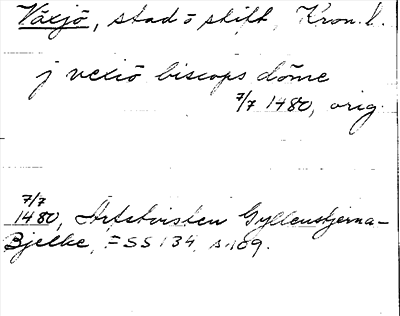 Växjö, stad o stift, Kron. l.
j vexiö biscops döme
7/7 1480, orig.
7/7
1480, Arfstvisten Gyllenstjerna-
Bjelke, FSS 134, s. 109.